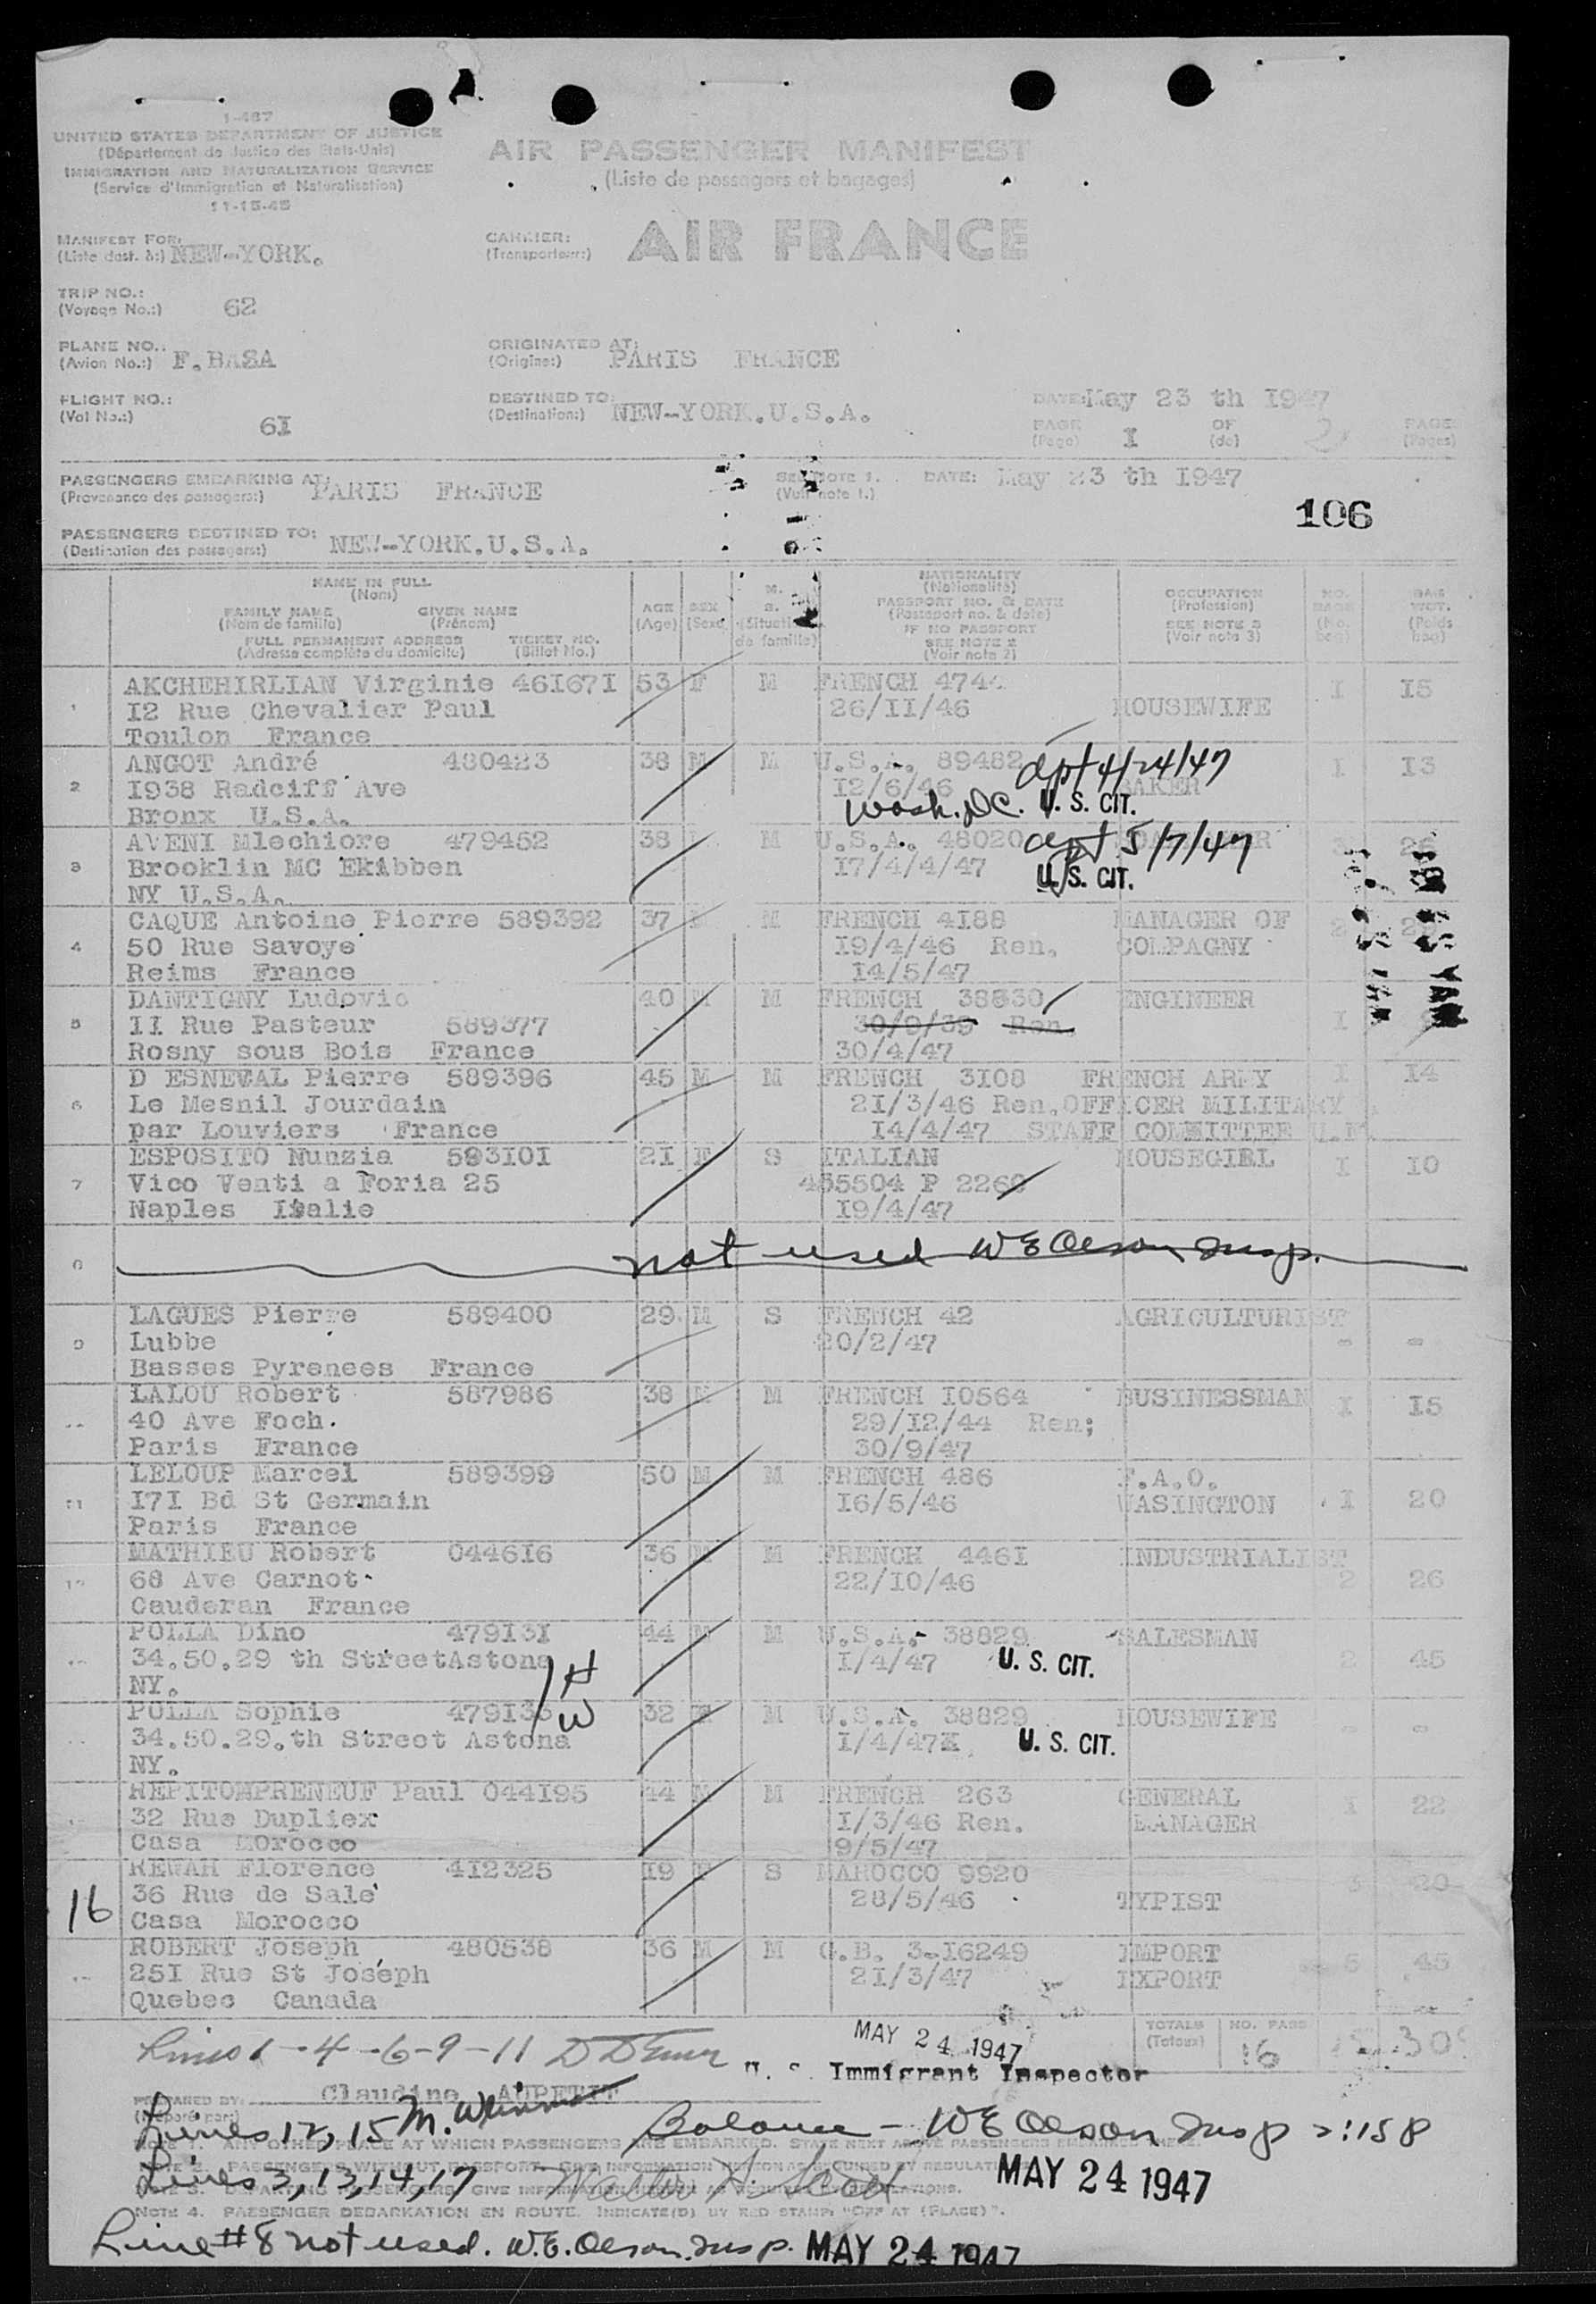 1-487
UNITED STATES DEPARTMENT OF JUSTICE
(Département de Justice des Etats-Unis)
IMMIGRATION AND NATURALIZATION SERVICE
(Service d'Immigration et Naturalisation)
11-15-45
AIR PASSENGER MANIFEST
(Liste de passagers et bagages)
MANIFEST FOR:
(Liste dest. à:) NEW-YORK.
CARRIER:
(Transporteur:) AIR FRANCE
TRIP NO.:
(Voyage No.:) 62
PLANE NO.:
(Avion No.:) F.BASA
ORIGINATED AT:
(Origine:) PARIS FRANCE
FLIGHT NO.:
(Vol No.:) 6I
DESTINED TO:
(Destination:) NEW-YORK.U.S.A.
DATE: May 23 th I947
PAGE I OF 2 PAGES
(Page) (de) (Pages)
PASSENGERS EMBARKING AT:
(Provenance des passagers:) PARIS FRANCE
SEE NOTE 1. DATE: May 23 th I947
(Voir note 1.)
106
PASSENGERS DESTINED TO:
(Destination des passagers:) NEW-YORK.U.S.A.
NAME IN FULL
(Nom)
FAMILY NAME GIVEN NAME
(Nom de famille) (Prénom)
FULL PERMANENT ADDRESS TICKET NO.
(Adresse complète du domicile) (Billet No.)
AGE
(Age)
SEX
(Sexe)
M.
S.
(Situation
de famille)
NATIONALITY
(Nationalité)
PASSPORT NO. & DATE
(Passeport no. & date)
IF NO PASSPORT
SEE NOTE 2
(Voir note 2)
OCCUPATION
(Profession)
SEE NOTE 3
(Voir note 3)
NO.
BAGS
(No.
bag)
BAG
WGT.
(Poids
bag)
1 AKCHEHIRLIAN Virginie 46I67I 53 F M FRENCH 474 I I5
I2 Rue Chevalier Paul 26/II/46 HOUSEWIFE
Toulon France
2 ANGOT André 480423 38 M M U.S.A. 89482 dpt 4/24/47 I I3
I938 Radciff Ave I2/6/46 BAKER
Bronx U.S.A. Wash. DC. U. S. CIT.
3 AVENI Mlechiore 479452 38 M U.S.A. 48020 dpt 5/7/47
Brooklin MC Ekibben I7/4/4/47 U. S. CIT.
NY U.S.A.
4 CAQUE Antoine Pierre 589392 37 M FRENCH 4I88 MANAGER OF
50 Rue Savoye I9/4/46 Ren. COLPAGNY
Reims France I4/5/47
5 DANTIGNY Ludovic 40 M FRENCH 38830 ENGINEER
II Rue Pasteur 589377 30/9/39 Ren I
Rosny sous Bois France 30/4/47
6 D ESNEVAL Pierre 589396 45 M M FRENCH 3I08 FRENCH ARMY I I4
Le Mesnil Jourdain 2I/3/46 Ren. OFFICER MILITARY
par Louviers France I4/4/47 STAFF COMMITTEE U.N.
7 ESPOSITO Nunzia 593I0I 2I F S ITALIAN HOUSEGIRL I I0
Vico Venti a Foria 25 455504 P 2260
Naples Italie I9/4/47
8 not used W E Olson Insp.
9 LAGUES Pierre 589400 29 M S FRENCH 42 AGRICULTURIST
Lubbe 20/2/47 - -
Basses Pyrenees France
LALOU Robert 587986 38 M M FRENCH I0564 BUSINESSMAN I I5
40 Ave Foch. 29/I2/44 Ren;
Paris France 30/9/47
11 LELOUP Marcel 589399 50 M M FRENCH 486 F.A.O.
I7I Bd St Germain I6/5/46 WASINGTON I 20
Paris France
MATHIEU Robert 0446I6 36 M M FRENCH 446I INDUSTRIALIST
68 Ave Carnot 22/I0/46 2 26
Cauderan France
POLLA Dino 479I3I 44 M M U.S.A. 38829 SALESMAN
34.50.29 th StreetAstona H I/4/47 U. S. CIT. 2 45
NY.
POLLA Sophie 479I33 W 32 F M U.S.A. 38829 HOUSEWIFE
34.50.29.th Street Astona I/4/47 U. S. CIT. - -
NY.
REPITOMPRENEUF Paul 044I95 44 M M FRENCH 263 GENERAL I 22
32 Rue Dupliex I/3/46 Ren. MANAGER
Casa MOrocco 9/5/47
16 REWAH Florence 4I2325 I9 F S MAROCCO 9920 3 20
36 Rue de Salé 28/5/46 TYPIST
Casa Morocco
ROBERT Joseph 480538 36 M M G.B. 3-I6249 IMPORT 5 45
25I Rue St Joseph 2I/3/47 EXPORT
Quebec Canada
Lines 1-4-6-9-11
MAY 24 1947
Immigrant Inspector
TOTALS NO. PASS
(Totaux) 16
PREPARED BY: Claudine AUPETIT
(Préparé par:)
Lines 12, 15 M.
Balance - W E Olson Insp 2:15 P
NOTE 1. ANY OTHER PLACE AT WHICH PASSENGERS ARE EMBARKED.
Lines 3, 13, 14, 17 Walter H. Scott
MAY 24 1947
NOTE 4. PASSENGER DEBARKATION EN ROUTE. INDICATE(D) BY RED STAMP: "OFF AT (PLACE)".
Line #8 not used. W.E. Olson. Insp. MAY 24 1947